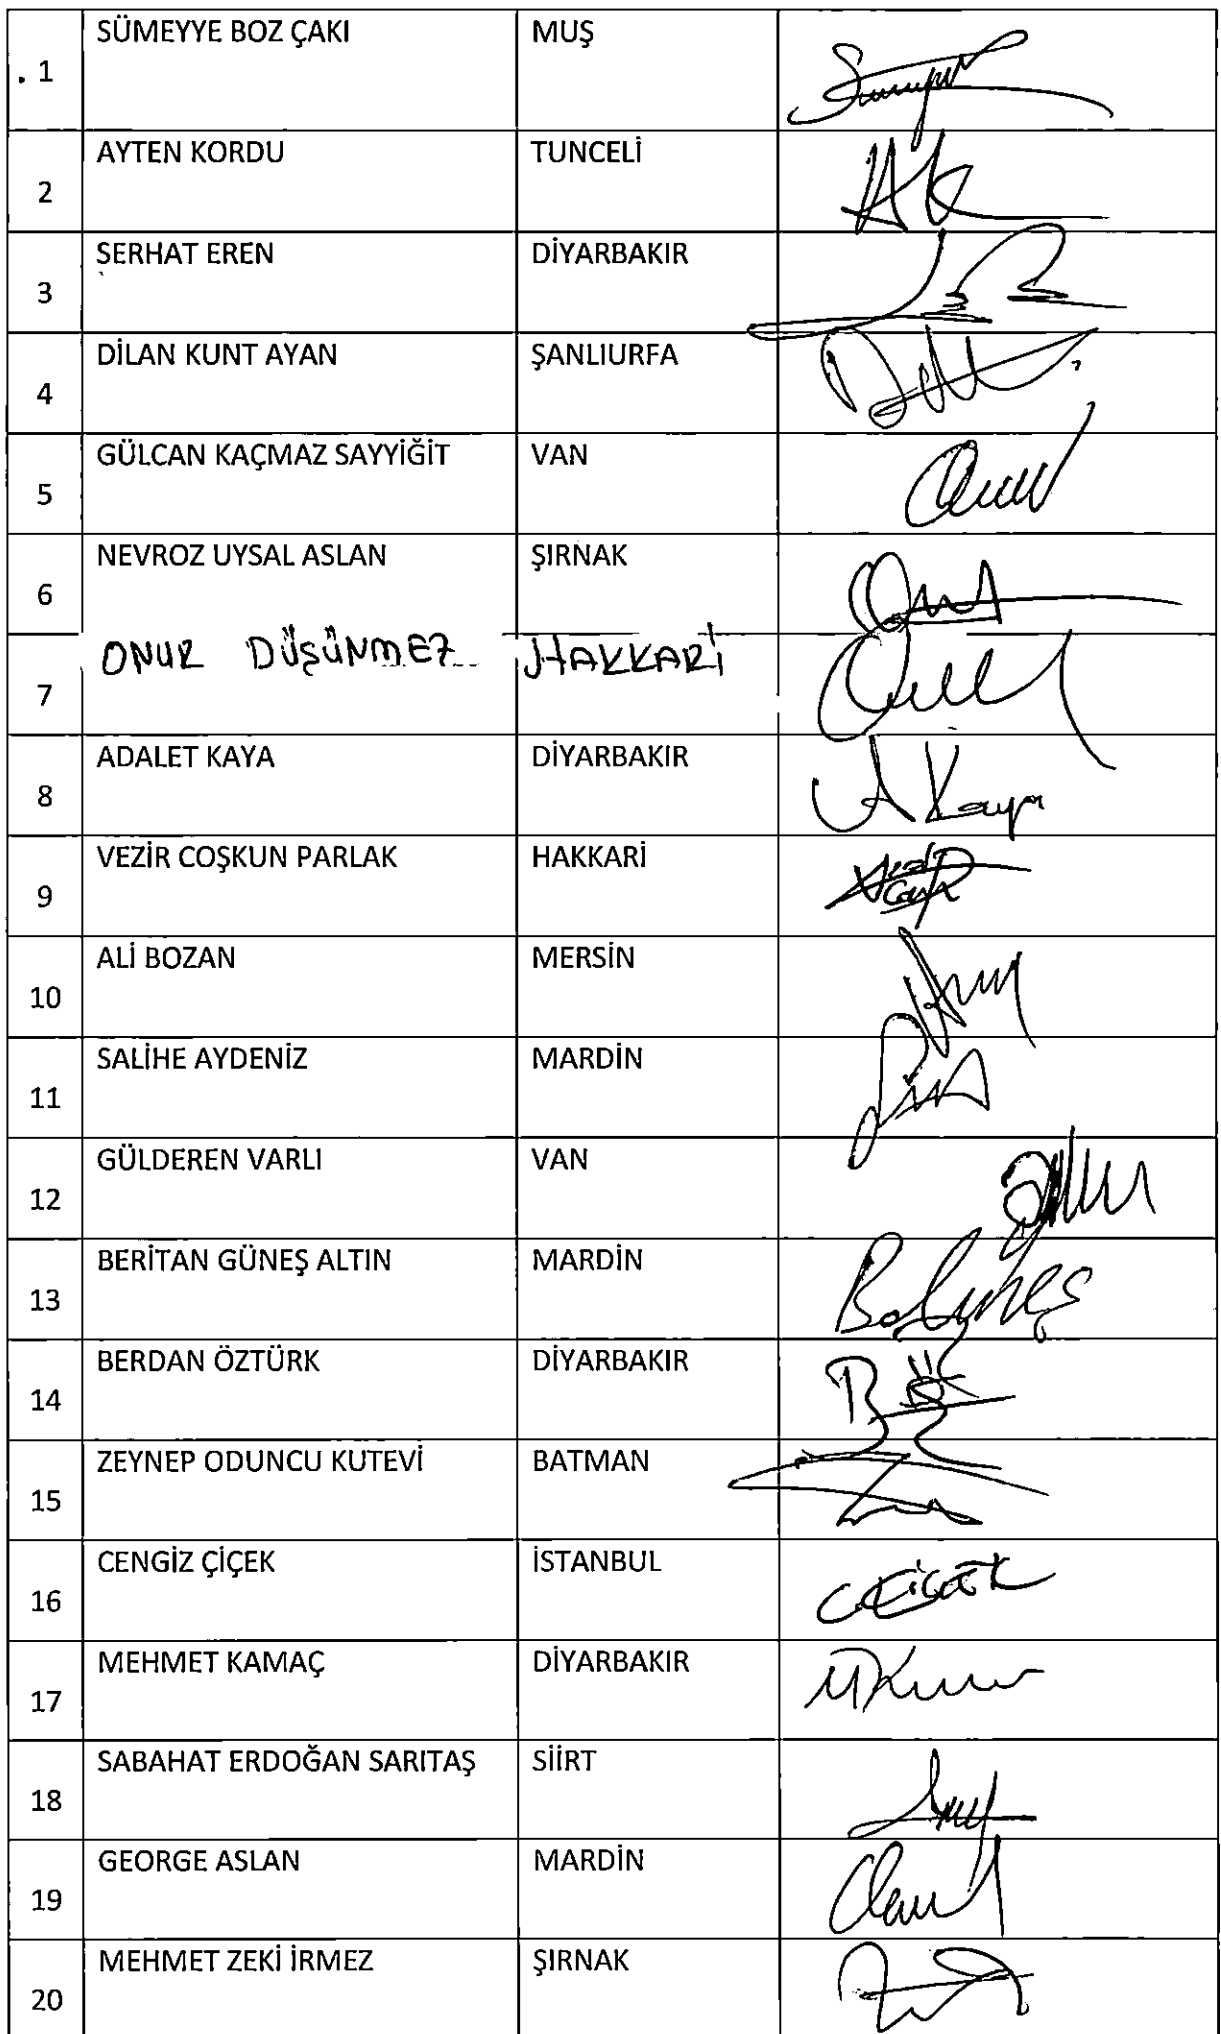 1 SÜMEYYE BOZ ÇAKI MUŞ
2 AYTEN KORDU TUNCELİ
3 SERHAT EREN DİYARBAKIR
4 DİLAN KUNT AYAN ŞANLIURFA
5 GÜLCAN KAÇMAZ SAYYİĞİT VAN
6 NEVROZ UYSAL ASLAN ŞIRNAK
7 ONUR DÜŞÜNMEZ HAKKARİ
8 ADALET KAYA DİYARBAKIR A Kaya
9 VEZİR COŞKUN PARLAK HAKKARİ
10 ALİ BOZAN MERSİN
11 SALİHE AYDENİZ MARDİN
12 GÜLDEREN VARLI VAN
13 BERİTAN GÜNEŞ ALTIN MARDİN
14 BERDAN ÖZTÜRK DİYARBAKIR
15 ZEYNEP ODUNCU KUTEVİ BATMAN
16 CENGİZ ÇİÇEK İSTANBUL
17 MEHMET KAMAÇ DİYARBAKIR
18 SABAHAT ERDOĞAN SARITAŞ SİİRT
19 GEORGE ASLAN MARDİN
20 MEHMET ZEKİ İRMEZ ŞIRNAK